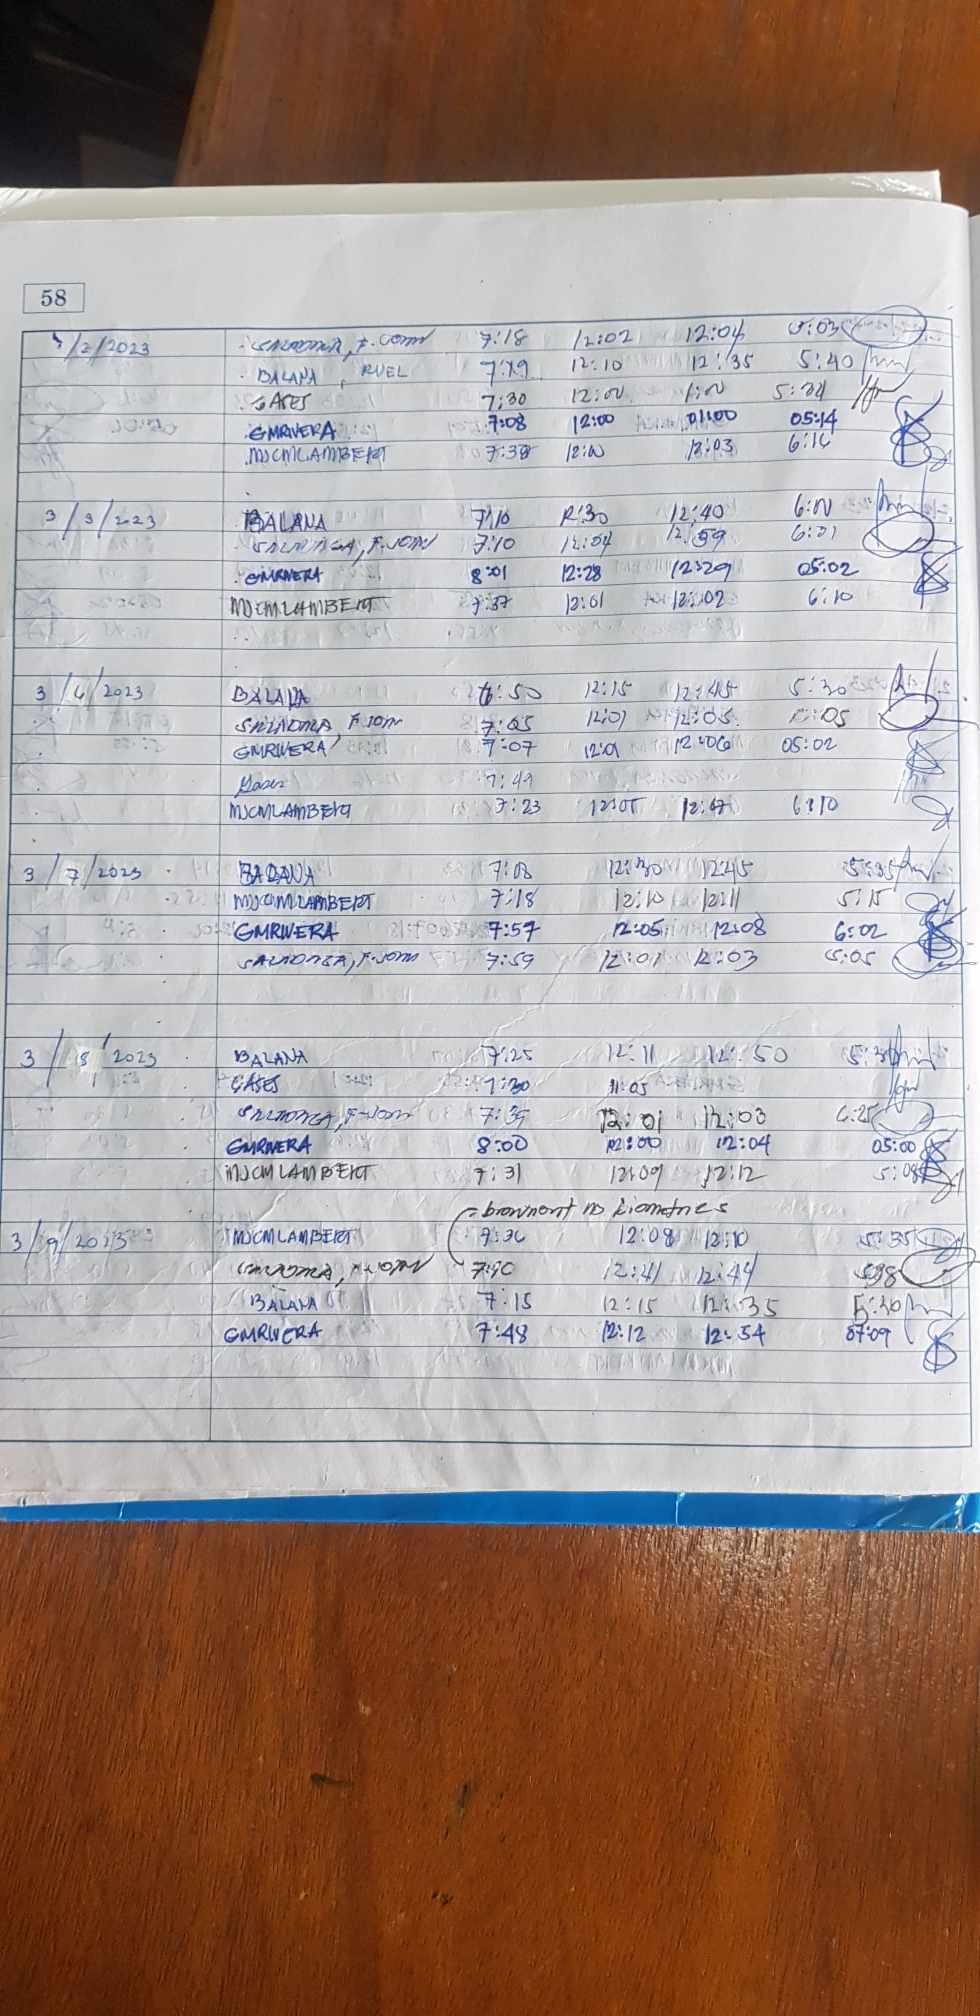 58
/2/2023 7:18 12:02 12:04
BALANA, RUEL 12:10 12:35 5:40
GASES 7:30 12:00 1:00
GMRIVERA 7:08 12:00 01:00 05:14
MJCMLAMBERT 7:38 12:03
3/3/2023 BALANA 7:10 12:30 12:40 6:00
F. JOHN 7:10 12:04 12:59 6:01
GMRIVERA 8:01 12:28 12:29 05:02
MJCMLAMBERT 7:37 12:01 12:02 6:10
3/6/2023 BALANA 6:50 12:15 12:45 5:30
F. JOHN 7:05 12:01 12:05 :05
GMRIVERA 7:07 12:01 12:06 05:02
7:49
MJCMLAMBERT 7:23 12:05 12:07 6:10
3/7/2023 BALANA 7:03 12:30 12:45 5:35
MJCMLAMBERT 7:18 12:10 12:11 5:15
GMRIVERA 7:57 12:05 12:08 6:02
F. JOHN 7:59 12:01 12:03 5:05
3/8/2023 BALANA 7:25 12:11 12:50
GASES 7:30 11:05
F. JOHN 7:39 12:01 12:03 6:25
GMRIVERA 8:00 12:00 12:04 05:00
MJCMLAMBERT 7:31 12:09 12:12 5:08
- brownout no biometrics
3/9/2023 MJCMLAMBERT 7:36 12:08 12:10 5:35
12:41 12:44
BALANA 7:15 12:15 12:35 5:30
GMRIVERA 7:48 12:12 12:54 07:09